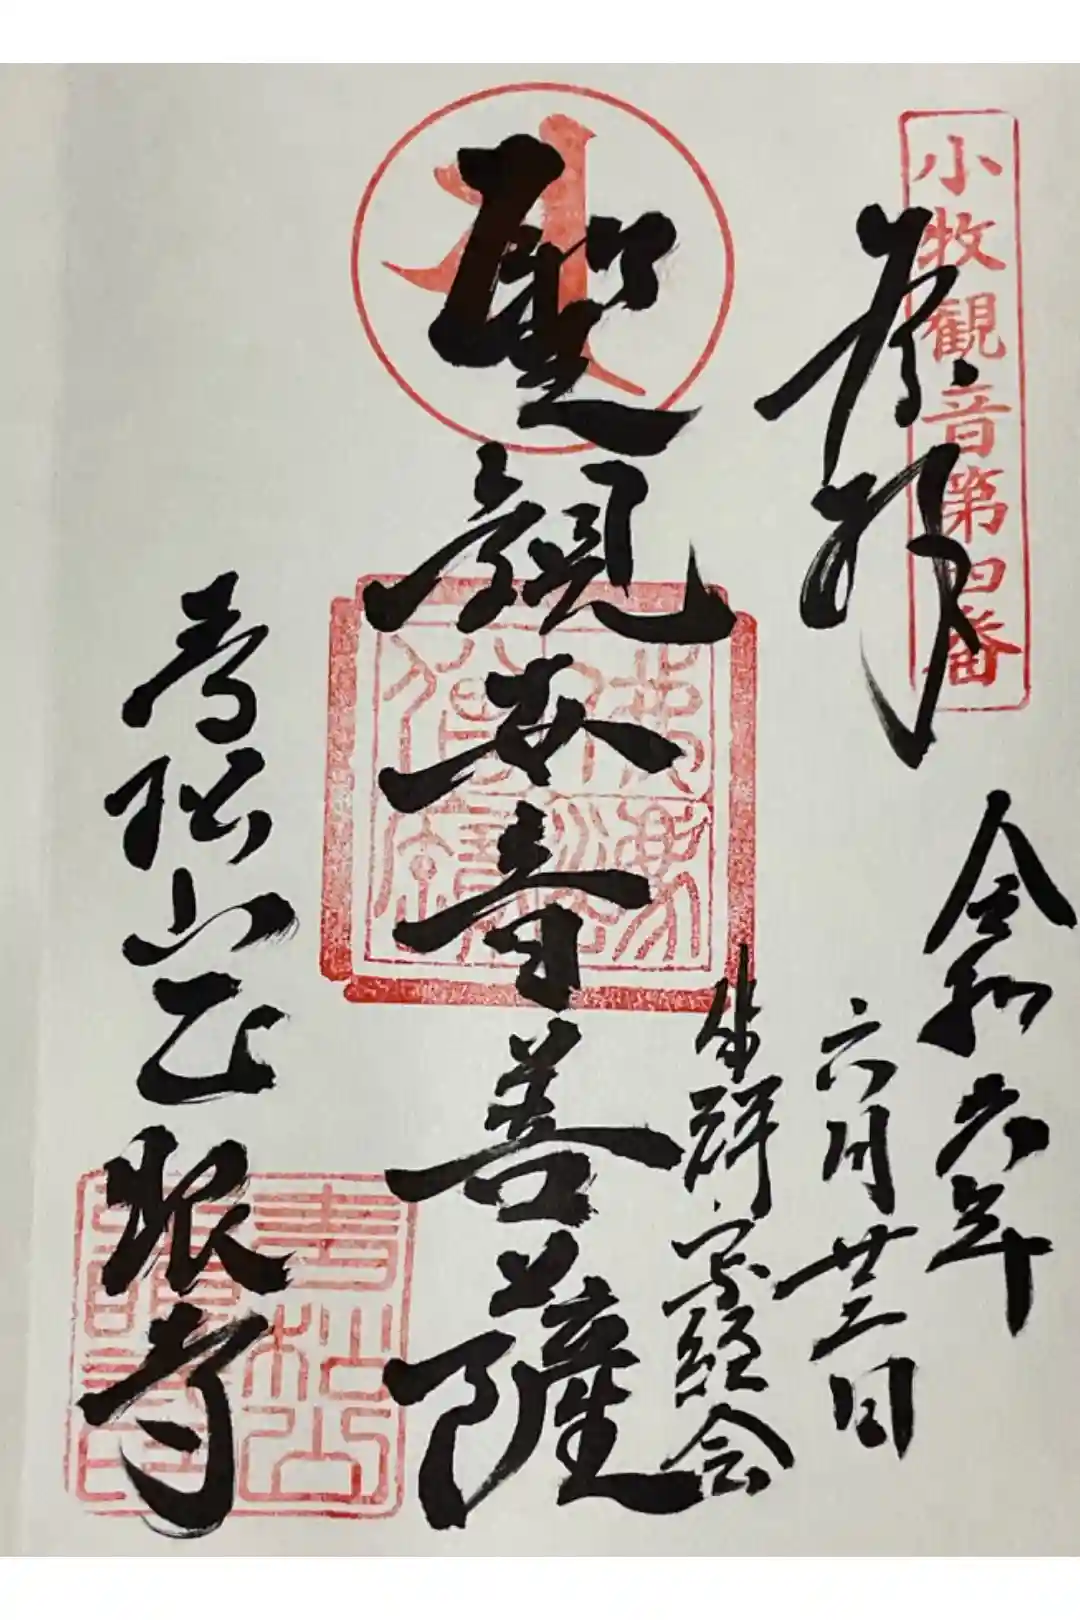 小牧観音第四番
奉拝
令和六年
六月廿三日
坐禅写経会
聖観世音菩薩
佛法僧寶
青松山正眼寺